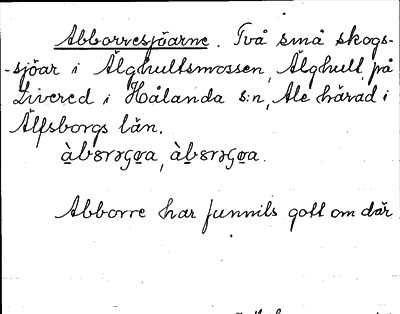 Abborresjöarne. Två små skogs-
-sjöar i Älghultsmossen, Älghult, på
Livered i Hålanda s:n, Ale härad i
Älfsborgs län.
Abborre har funnits gott om där